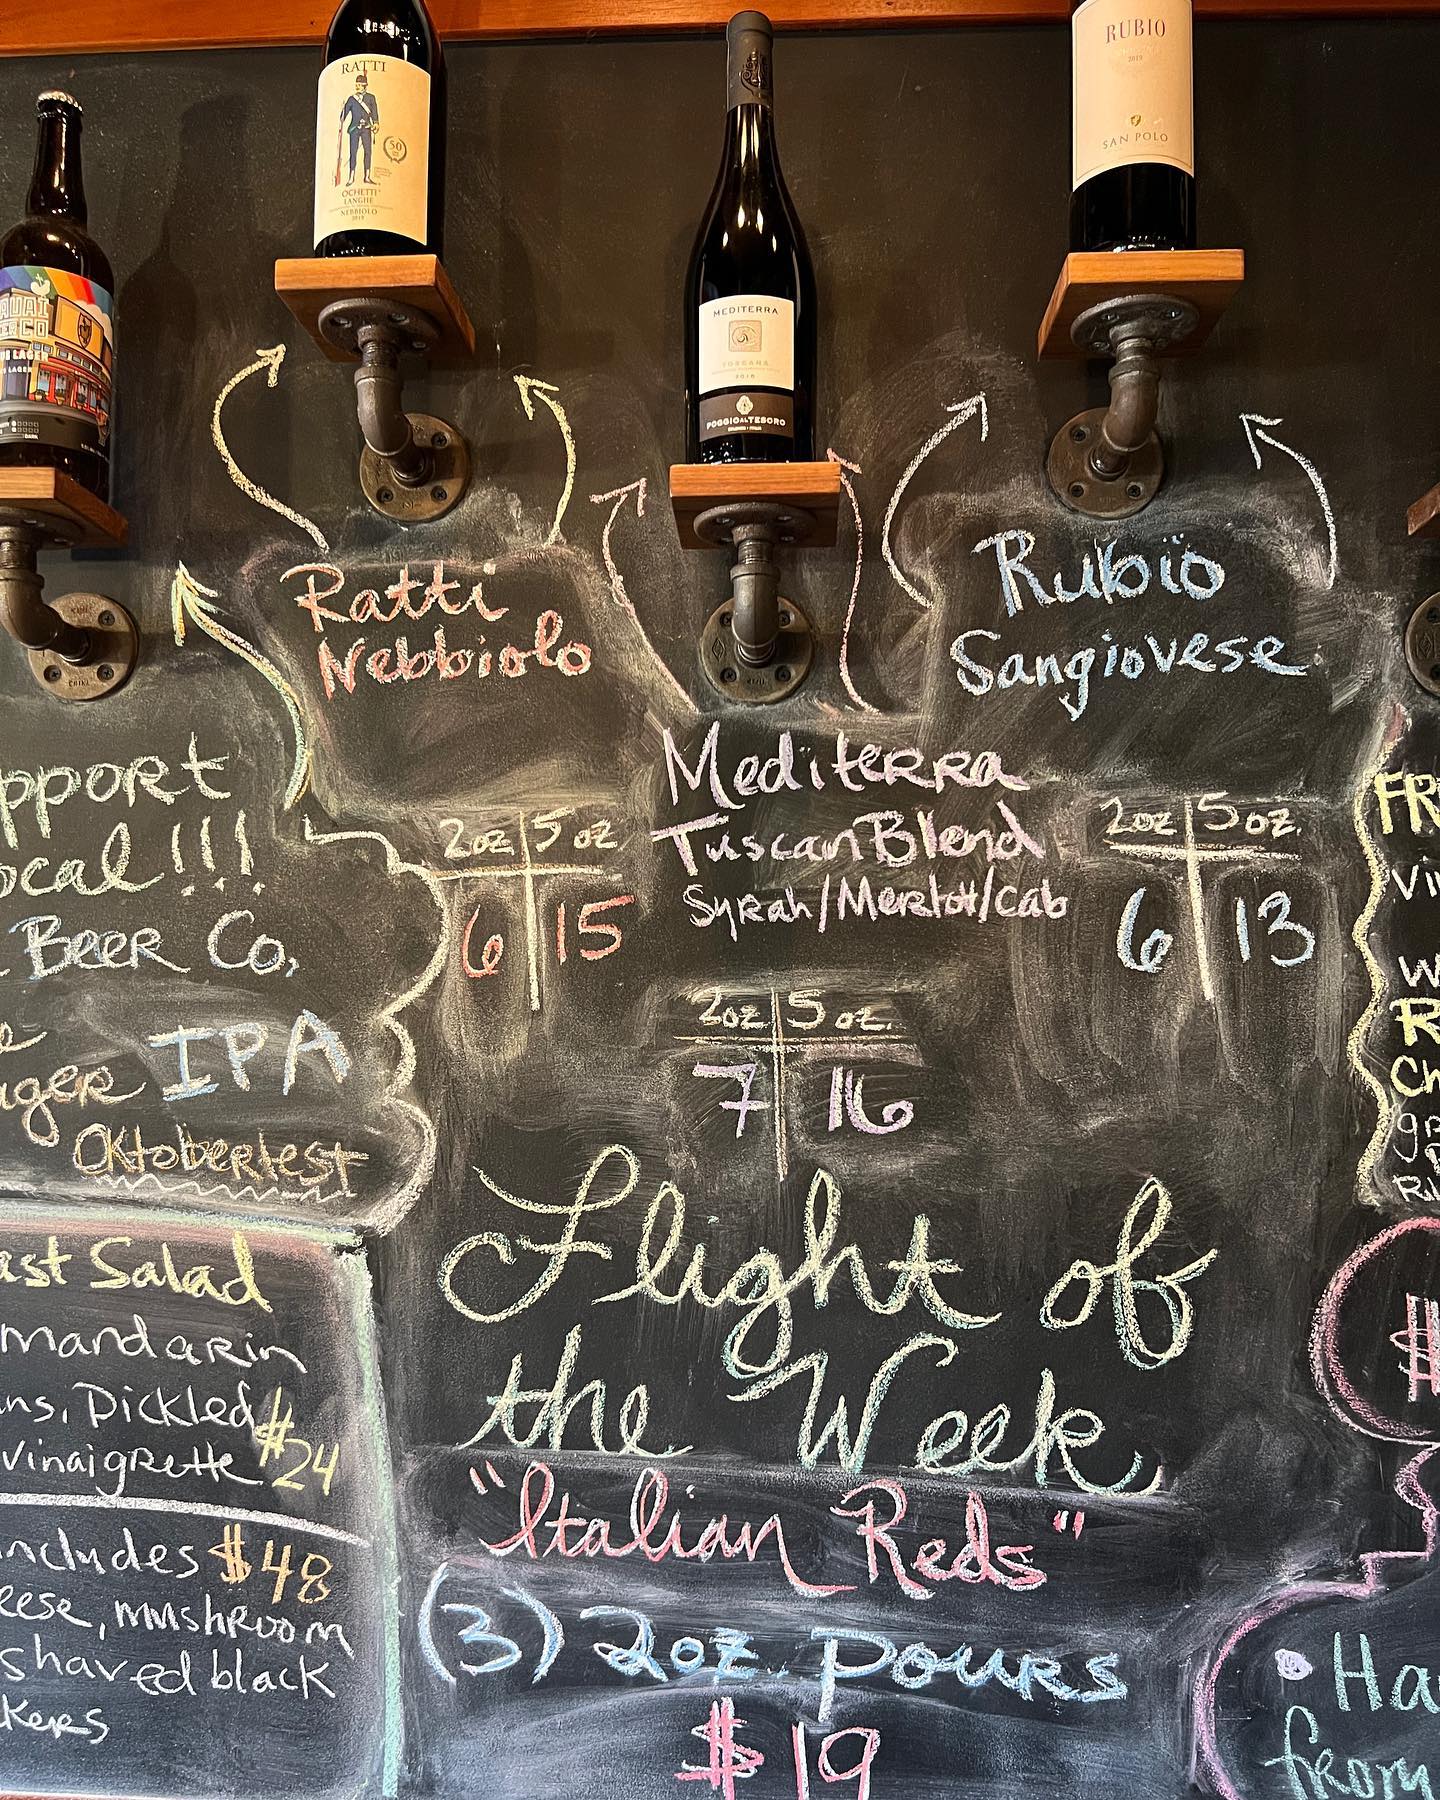 RATTI
50
OCHETTI
LANGHE
NEBBIOLO
2019
RUBIO
2019
SAN POLO
MEDITERRA
TOSCANA
2018
POGGIO AL TESORO
LAGER
DARK
Ratti
Nebbiolo
2oz 5 oz
6 15
Mediterra
Tuscan Blend
Syrah/Merlot/Cab
2oz 5 oz.
7 16
Rubio
Sangiovese
2oz 5 oz.
6 13
pport
ocal!!!
Beer Co.
IPA
ager
Oktoberfest
ast Salad
mandarin
ns, Pickled
vinaigrette $24
includes $48
eese, mushroom
shaved black
kers
Flight of
the Week
"Italian Reds"
(3) 2oz. pours
$19
FR
vi
W
R
Ch
gr
$
• Ha
from